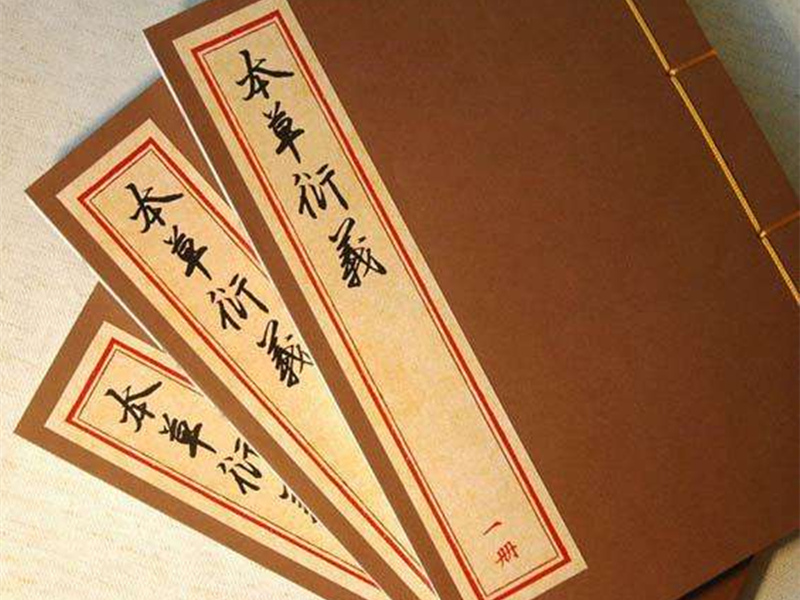 本草衍義
一册
本草衍義
本草衍